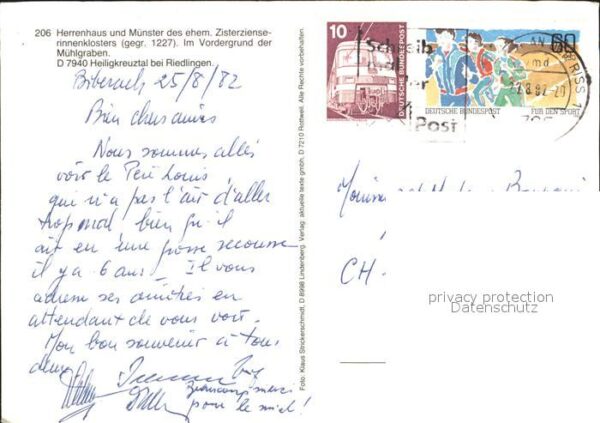 206 Herrenhaus und Münster des ehem. Zisterziense-
rinnenklosters (gegr. 1227). Im Vordergrund der
Mühlgraben.
D 7940 Heiligkreuztal bei Riedlingen.
Biberach 25/8/82
Bien chers amis
Nous sommes allés
voir le Père Louis
qui n'a pas l'air d'aller
trop mal bien qu'il
ait eu une grosse secousse
il y a 6 ans. Il vous
adresse ses amitiés en
attendant de vous voir.
Mon bon souvenir à tous
deux
Beaucoup merci
pour le miel!
Foto: Klaus Strickerschmidt, D 8998 Lindenberg. Verlag: aktuelle texte gmbh, D 7210 Rottweil. Alle Rechte vorbehalten.
10
DEUTSCHE BUNDESPOST
60
DEUTSCHE BUNDESPOST
FÜR DEN SPORT
Schreib
mal
wieder
Post
RISS 1
md
.8.82-20
CH-
privacy protection
Datenschutz